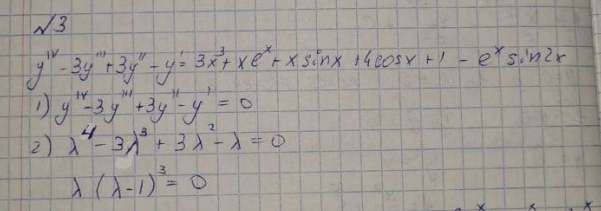 №3
y^IV - 3y''' + 3y'' - y' = 3x^3 + xe^x + x sinx + 4cosx + 1 - e^x sin2x
1) y^IV - 3y''' + 3y'' - y' = 0
2) λ^4 - 3λ^3 + 3λ^2 - λ = 0
λ(λ-1)^3 = 0